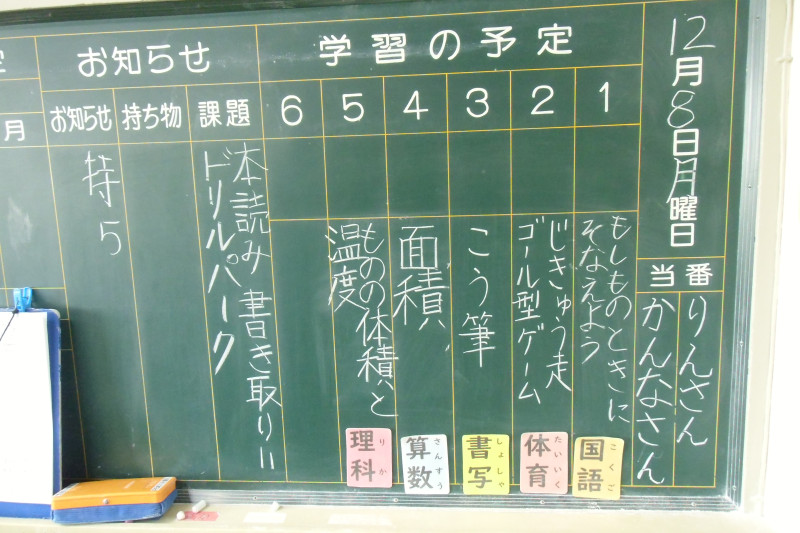 12月8日月曜日
当番
りんさん
かんなさん
学習の予定
1
もしものときに
そなえよう
国語
こくご
2
じきゅう走
ゴール型ゲーム
体育
たいいく
3
こう筆
書写
しょしゃ
4
面積
算数
さんすう
5
ものの体積と
温度
理科
りか
6
お知らせ
課題
本読み 書き取り11
ドリルパーク
持ち物
お知らせ
持ち
定
月